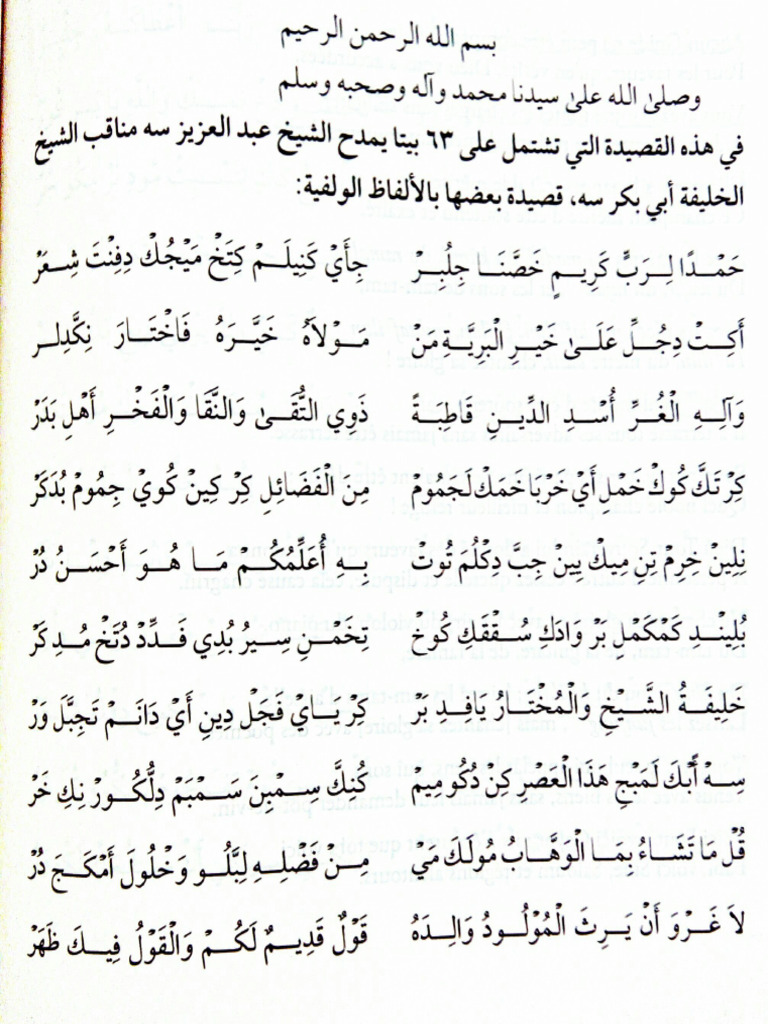 بسم الله الرحمن الرحيم
وصلىٰ الله علىٰ سيدنا محمد وآله وصحبه وسلم
في هذه القصيدة التي تشتمل على ٦٣ بيتا يمدح الشيخ عبد العزيز سه مناقب الشيخ
الخليفة أبي بكر سه، قصيدة بعضها بالألفاظ الولفية:
حَمْدًا لِرَبٍّ كَرِيمٍ خَصَّنَا جِلُبِرْ جِأَيْ كَنِيلَمْ كِتَخْ مَيْجُكْ دِفِنْتَ شِعَرْ
أَكِتْ دِجُلِّ عَلَىٰ خَيْرِ الْبَرِيَّةِ مَنْ مَوْلَاهُ خَيَّرَهُ فَاخْتَارَ نِكَّدِلِرْ
وَآلِهِ الْغُرِّ أُسْدِ الدِّينِ قَاطِبَةً ذَوِي التُّقَىٰ وَالنَّقَا وَالْفَخْرِ أَهْلِ بَدَرْ
كِرْتَكَّ كُوكْ خَمْلِ أَيْ خَرْبَا خَمَكْ لَجَمُومْ مِنَ الْفَضَائِلِ كِرْ كِينْ كُويْ جِمُومْ بُدَكَرْ
نِلِينْ خِرِمْ تِنِ مِيكْ يِينْ جِبَّ دِكْلُمَ نُوتْ بِهِ أُعَلِّمُكُمْ مَا هُوَ أَحْسَنُ دُرْ
بُلِينْدِ كَمْكَمْلِ بَرْ وَادَكَ سُفْقَكِ كُوخْ تِخَمْنِ سِيرُ بُدِي فَدِّدْ دُتَخْ مُدِ كَرْ
خَلِيفَةُ الشَّيْخِ وَالْمُخْتَارُ يِافِدِ بَرْ كِرْ يَايْ فَجَلِ دِينِ أَيْ دَانَمْ تَجِبَّلَ وَرْ
سِهْ أَبَّكَ لَمَبْجِ هَذَا الْعَصْرِ كِنْ دُكُومِيمْ كُنِكَّ سِمْبِنَ سَمْبَمْ دِلُّكُورْ نِكِ خَرْ
قُلْ مَا تَشَاءُ بِمَا الْوَهَّابُ مُولَكَ مَيْ مِنْ فَضْلِهِ لِبَّلُو وَخْلُولَ أَمْكَجِ دُرْ
لَا غَرْوَ أَنْ يَرِثَ الْمَوْلُودُ وَالِدَهُ قَوْلٌ قَدِيمٌ لَكُمْ وَالْقَوْلُ فِيكَ ظَهَرْ